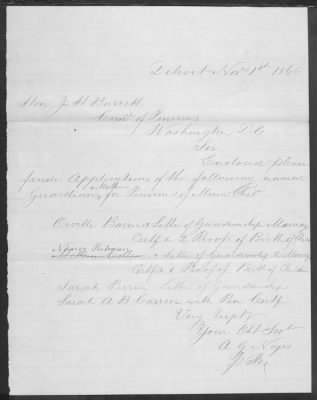 Detroit Nov 1st 1866
Hon J H Barrett
Comr of Pensions
Washington D.C
Sir
Enclosed please
find Applications of the following named
Mother
Guardians for Pensions of Minor Chil
Orville Barnes Letter of Guardianship Marriage
Certfs & 2 Proofs of Birth of
Nancy
Letter of Guardiansp & Marrg
Certfs & Proof of Birth of Chldn
Sarah Perrin Letter of Guardianship
Sarah A B Carrier with Pen Certf
Very Respty
Your Obt Svt
A G Noyes